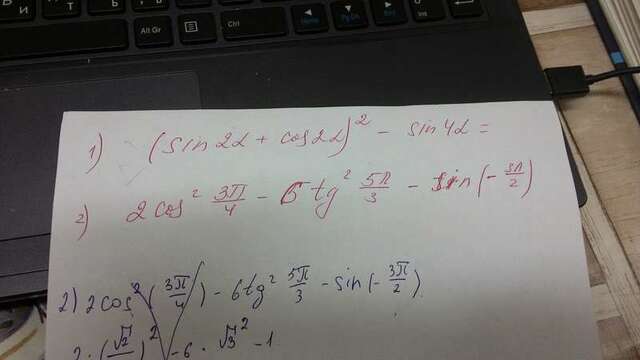 Alt Gr
Ctrl
Home
Pg Dn
End
Ins
1) (sin2α + cos2α)² - sin4α =
2) 2cos² 3π/4 - 6 tg² 5π/3 - sin(-3π/2)
2) 2cos² (3π/4) - 6tg² 5π/3 - sin(-3π/2)